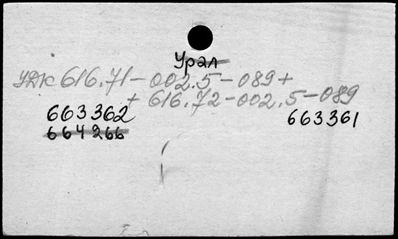 Урал
УДК 616.71-002.5-089+
+ 616.72-002.5-089
663362 663361
664266